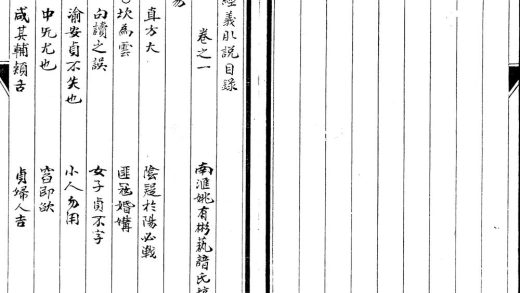 經義肊説目錄
卷之一
南滙姚有彬藝譜氏
易
直方大
陰疑於陽必戰
坎為雲
匪寇婚媾
句讀之誤
女子貞不字
渝安貞不失也
小人勿用
中冘尤也
窞即欿
咸其輔頰舌
貞婦人吉